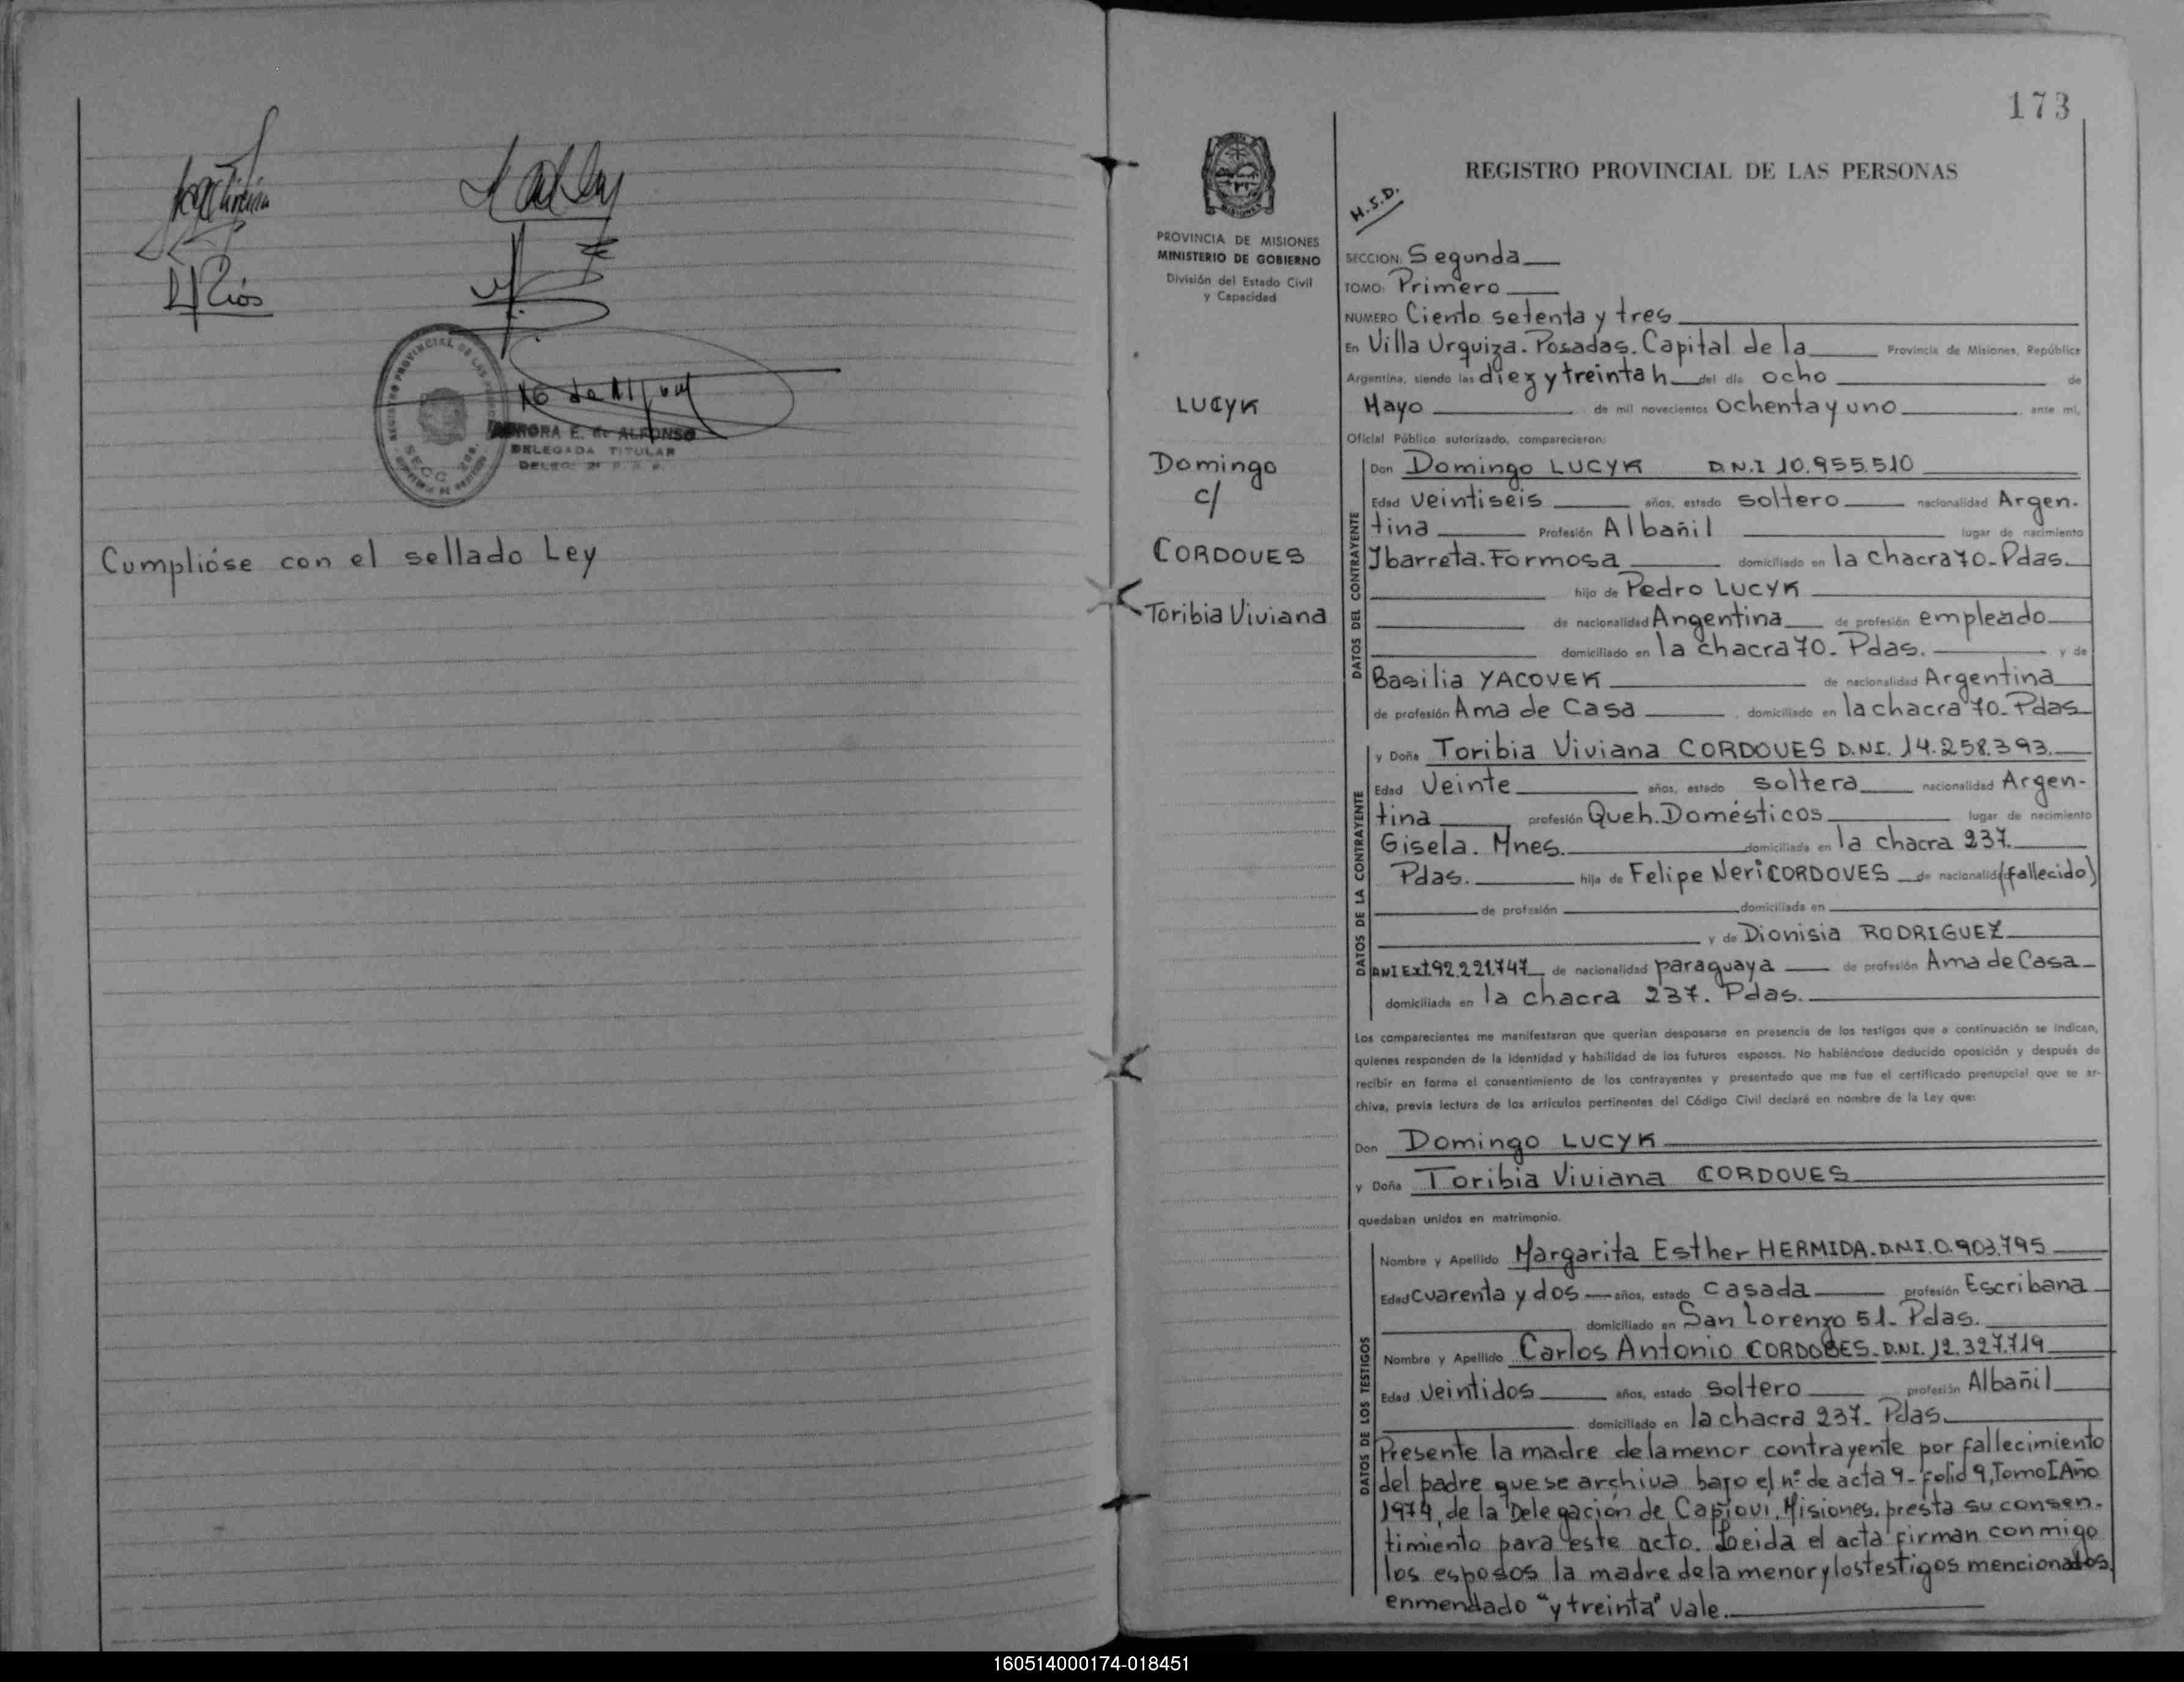 Cumplióse con el sellado Ley
REGISTRO PROVINCIAL DE LAS
SECC. 2da.
AURORA E. de ALFONSO
DELEGADA TITULAR
173
PROVINCIA DE MISIONES
MINISTERIO DE GOBIERNO
División del Estado Civil
y Capacidad
LUCYK
Domingo
c/
CORDOVES
Toribia Viviana
REGISTRO PROVINCIAL DE LAS PERSONAS
H.S.D.
SECCION: Segunda
TOMO: Primero
NUMERO Ciento setenta y tres
En Villa Urquiza. Posadas. Capital de la Provincia de Misiones, República
Argentina, siendo las diez y treinta h del día ocho de
Mayo de mil novecientos ochenta y uno, ante mí,
Oficial Público autorizado, comparecieron:
DATOS DEL CONTRAYENTE
Don Domingo LUCYK D.N.I 10.955.510
Edad veintiseis años, estado soltero nacionalidad Argen-
tina Profesión Albañil lugar de nacimiento
Ibarreta. Formosa domiciliado en la chacra 70- Pdas.
hijo de Pedro LUCYK
de nacionalidad Argentina de profesión empleado
domiciliado en la chacra 70- Pdas. y de
Basilia YACOVEK de nacionalidad Argentina
de profesión Ama de Casa, domiciliado en la chacra 70- Pdas
DATOS DE LA CONTRAYENTE
y Doña Toribia Viviana CORDOVES D.N.I. 14.258.393.
Edad Veinte años, estado soltera nacionalidad Argen-
tina profesión Queh. Domésticos lugar de nacimiento
Gisela. Mnes. domiciliada en la chacra 237.
Pdas. hija de Felipe Neri CORDOVES de nacionalidad (fallecido)
de profesión domiciliada en
y de Dionisia RODRIGUEZ
DNI Ext 92.221.747 de nacionalidad paraguaya de profesión Ama de Casa
domiciliada en la chacra 237. Pdas.
Los comparecientes me manifestaron que querían desposarse en presencia de los testigos que a continuación se indican,
quienes responden de la identidad y habilidad de los futuros esposos. No habiéndose deducido oposición y después de
recibir en forma el consentimiento de los contrayentes y presentado que me fue el certificado prenupcial que se ar-
chiva, previa lectura de los artículos pertinentes del Código Civil declaré en nombre de la Ley que:
Don Domingo LUCYK
y Doña Toribia Viviana CORDOVES
quedaban unidos en matrimonio.
DATOS DE LOS TESTIGOS
Nombre y Apellido Margarita Esther HERMIDA. D.N.I. 0.903.795
Edad cuarenta y dos años, estado casada profesión Escribana
domiciliado en San Lorenzo 51- Pdas.
Nombre y Apellido Carlos Antonio CORDOBES. D.N.I. 12.327.719
Edad veintidos años, estado soltero profesión Albañil
domiciliado en la chacra 237- Pdas.
Presente la madre de la menor contrayente por fallecimiento
del padre que se archiva bajo el nº de acta 9- folio 9, Tomo I Año
1974, de la Delegación de Capioui. Misiones. presta su consen-
timiento para este acto. Leida el acta firman conmigo
los esposos la madre de la menor y los testigos mencionados.
enmendado "y treinta" vale.
160514000174-018451